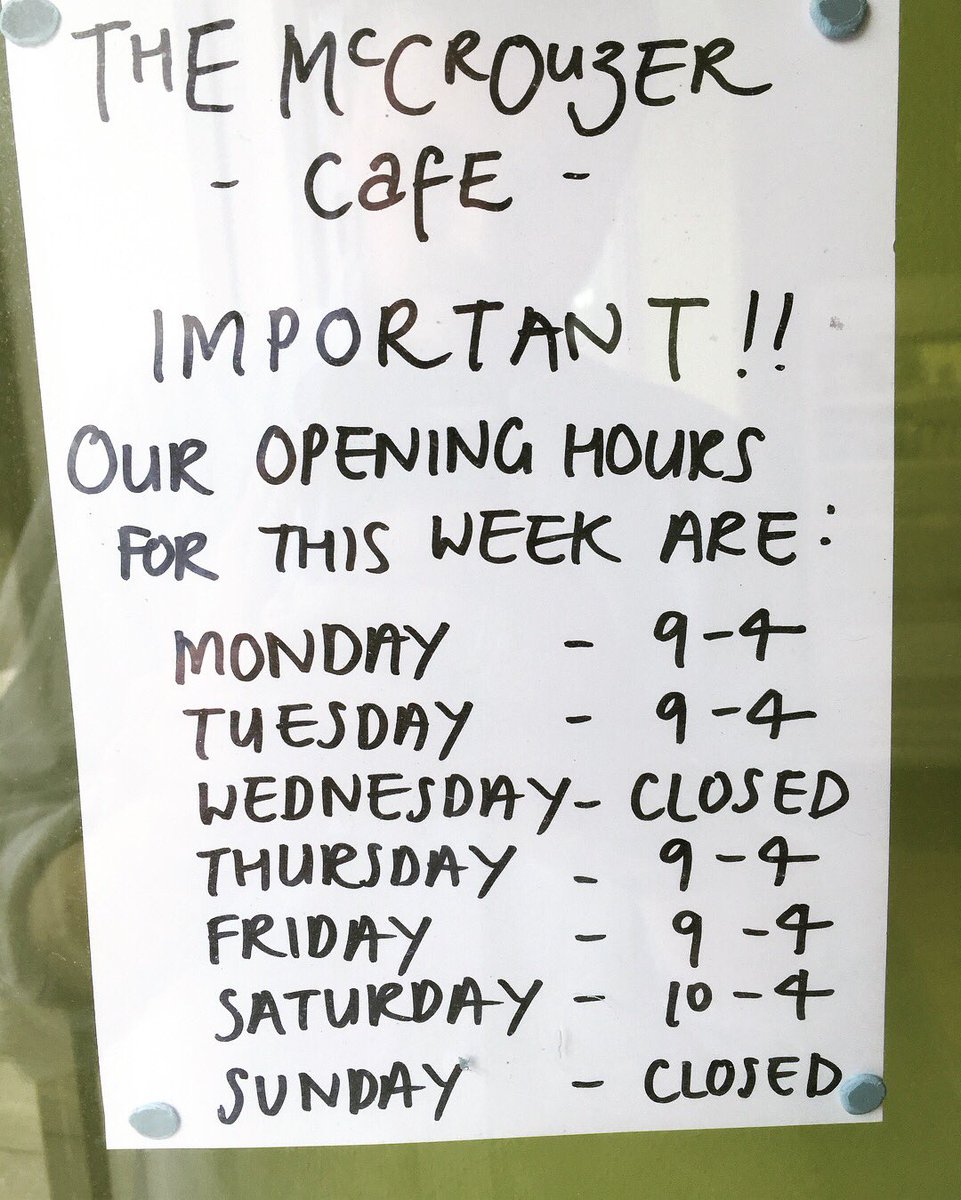 THE McCROUZER
- CafE -
IMPORTANT!!
OUR OPENING HOURS
FOR THIS WEEK ARE:
MONDAY - 9-4
TUESDAY - 9-4
WEDNESDAY- CLOSED
THURSDAY - 9-4
FRIDAY - 9-4
SATURDAY - 10-4
SUNDAY - CLOSED